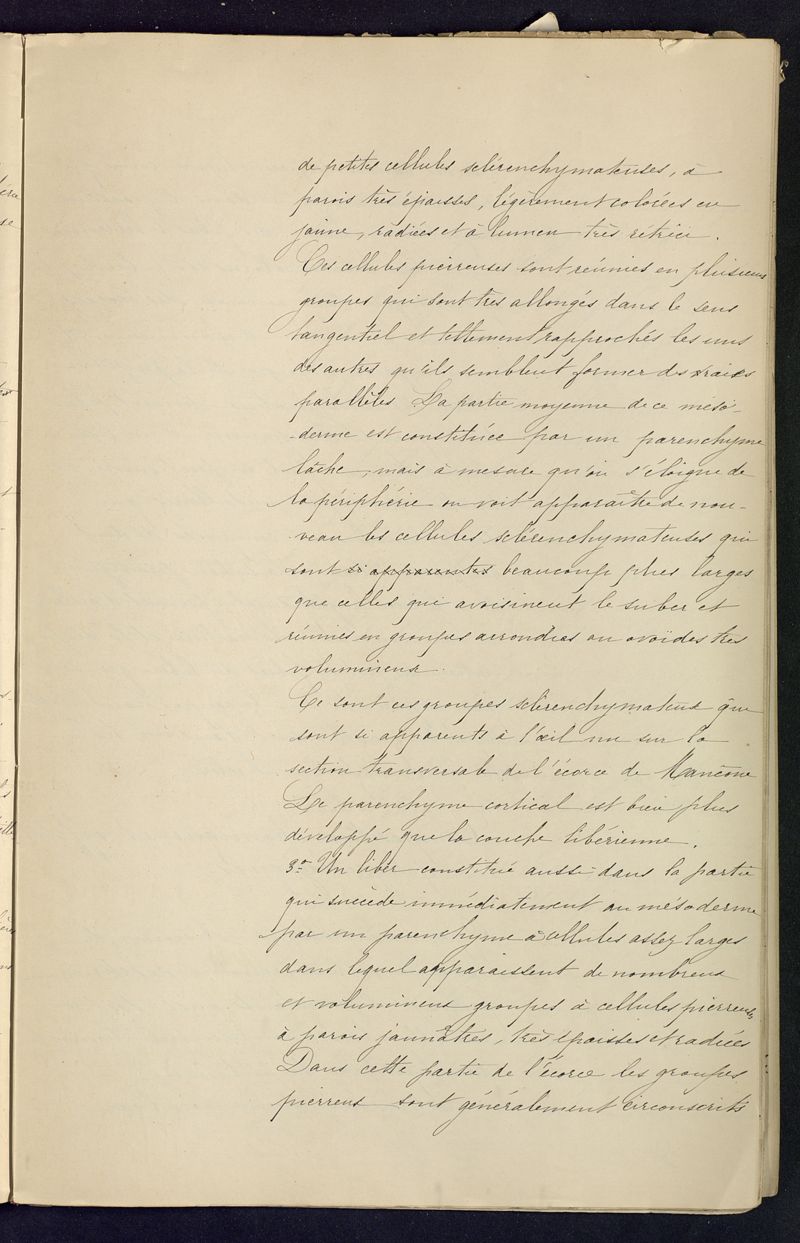 de petites cellules sclérenchymateuses, à
parois très épaisses, légèrement colorées en
jaune, radiées et à lumen très rétréci.
Ces cellules pierreuses sont réunies en plusieurs
groupes qui sont très allongés dans le sens
tangentiel et tellement rapprochés les uns
des autres qu'ils semblent former des raies
parallèles. La partie moyenne de ce méso-
-derme est constituée par un parenchyme
lâche, mais à mesure qu'on s'éloigne de
la périphérie on voit apparaître de nou-
veau les cellules sclérenchymateuses qui
sont si apparentes beaucoup plus larges
que celles qui avoisinent le suber et
réunies en groupes arrondies ou ovoïdes très
volumineux.
Ce sont ces groupes sclérenchymateux que
sont si apparents à l'œil nu sur la
section transversale de l'écorce de Mançone
Le parenchyme cortical est bien plus
développé que la couche libérienne.
3º Un liber constitué aussi dans la partie
qui succède immédiatement au mésoderme
par un parenchyme à cellules assez larges
dans lequel apparaissent de nombreux
et volumineux groupes à cellules pierreuses
à parois jaunâtres, très épaisses et radiées
Dans cette partie de l'écorce les groupes
pierreux sont généralement circonscrits